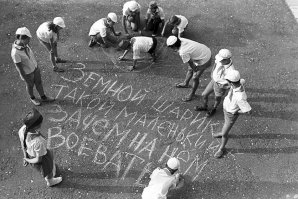 ЗЕМНОЙ ШАР
ТАКОЙ МАЛЕНЬКИЙ
ЗАЧЕМ НА НЁМ
ВОЕВАТЬ